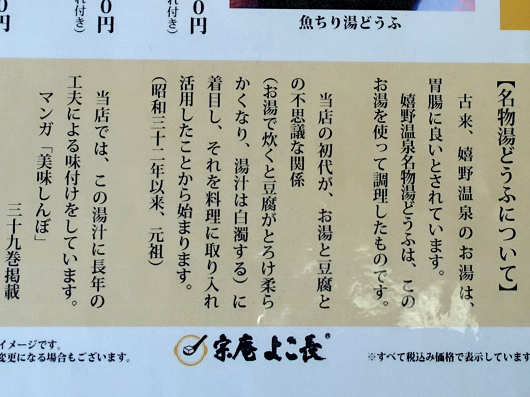 魚ちり湯どうふ
0円
れ付き)
0円
れ付き)
【名物湯どうふについて】
古来、嬉野温泉のお湯は、
胃腸に良いとされています。
嬉野温泉名物湯どうふは、この
お湯を使って調理したものです。
当店の初代が、お湯と豆腐と
の不思議な関係
(お湯で炊くと豆腐がとろけ柔ら
かくなり、湯汁は白濁する)に
着目し、それを料理に取り入れ
活用したことから始まります。
(昭和三十二年以来、元祖)
当店では、この湯汁に長年の
工夫による味付けをしています。
マンガ「美味しんぼ」
三十九巻掲載
イメージです。
変更になる場合もございます。
宗庵 よこ長®
※すべて税込み価格で表示しています